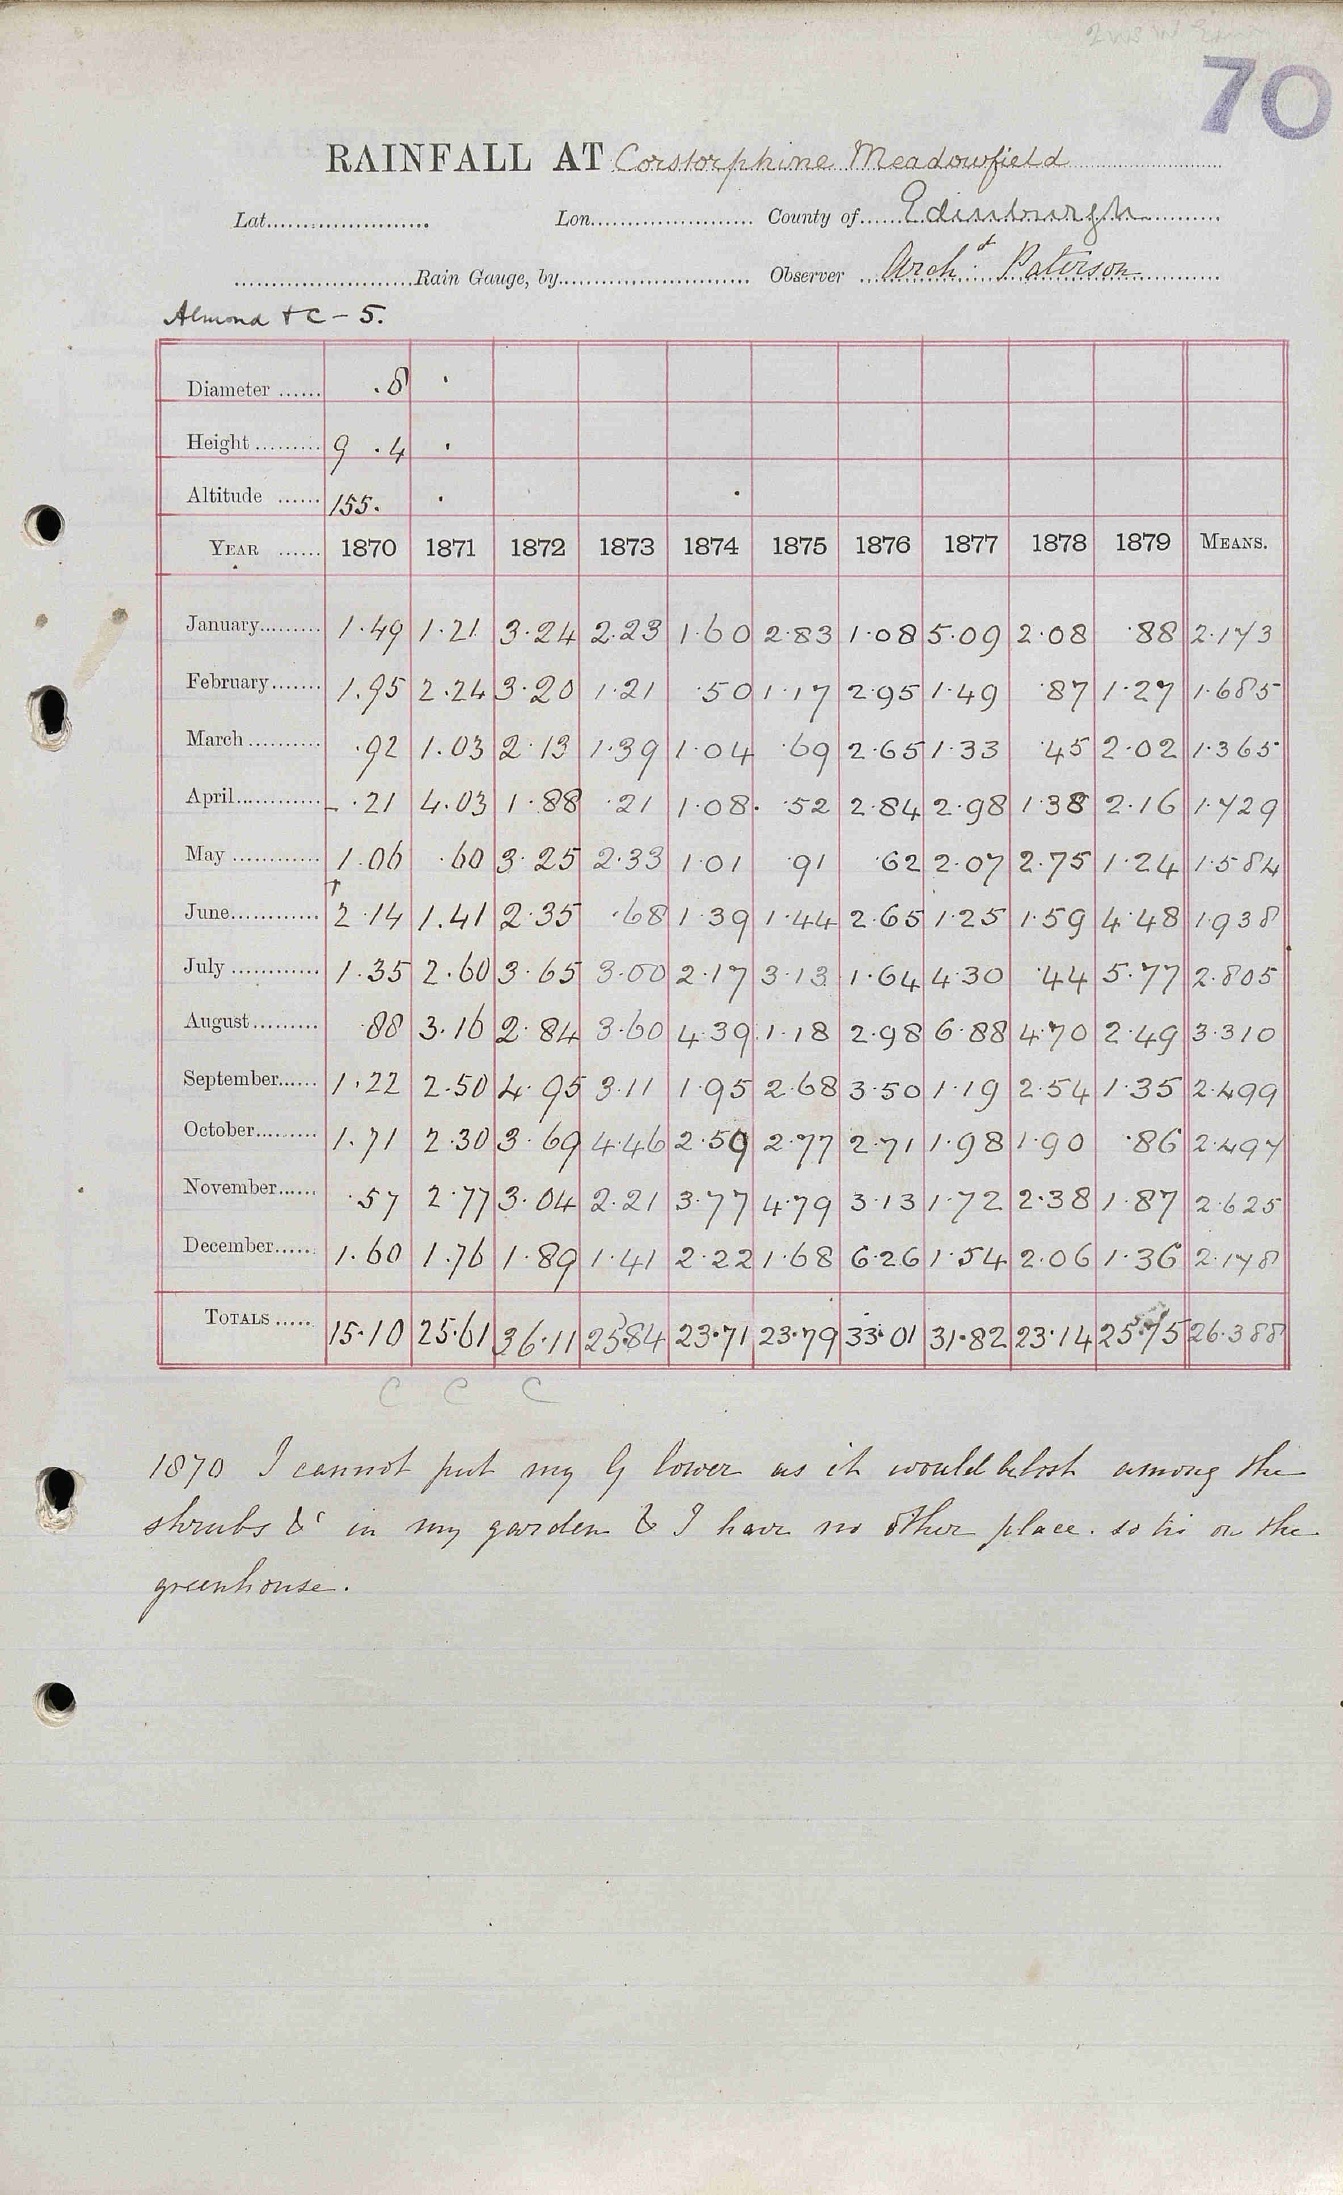 70
RAINFALL AT Corstorphine Meadowfield
Lat. Lon. County of Edinburgh
Rain Gauge, by Observer Arch^d. Paterson
Almond & C - 5.
Diameter ...... .8 .
Height ......... 9 .4 .
Altitude ...... 155. . .
YEAR ...... 1870 1871 1872 1873 1874 1875 1876 1877 1878 1879 MEANS.
January......... 1.49 1.21 3.24 2.23 1.60 2.83 1.08 5.09 2.08 .88 2.173
February....... 1.95 2.24 3.20 1.21 .50 1.17 2.95 1.49 .87 1.27 1.685
March .......... .92 1.03 2.13 1.39 1.04 .69 2.65 1.33 .45 2.02 1.365
April............. .21 4.03 1.88 .21 1.08 .52 2.84 2.98 1.38 2.16 1.729
May ............ 1.06 .60 3.25 2.33 1.01 .91 .62 2.07 2.75 1.24 1.584
June............ 2.14 1.41 2.35 .68 1.39 1.44 2.65 1.25 1.59 4.48 1.938
July ............ 1.35 2.60 3.65 3.00 2.17 3.13 1.64 4.30 .44 5.77 2.805
August......... .88 3.16 2.84 3.60 4.39 1.18 2.98 6.88 4.70 2.49 3.310
September...... 1.22 2.50 4.95 3.11 1.95 2.68 3.50 1.19 2.54 1.35 2.499
October......... 1.71 2.30 3.69 4.46 2.59 2.77 2.71 1.98 1.90 .86 2.497
November...... .57 2.77 3.04 2.21 3.77 4.79 3.13 1.72 2.38 1.87 2.625
December...... 1.60 1.76 1.89 1.41 2.22 1.68 6.26 1.54 2.06 1.36 2.178
TOTALS ..... 15.10 25.61 36.11 25.84 23.71 23.79 33.01 31.82 23.14 25.75 26.388
C C C
1870 I cannot put my G lower as it would be lost among the
shrubs &c in my garden & I have no other place. so tis on the
greenhouse.